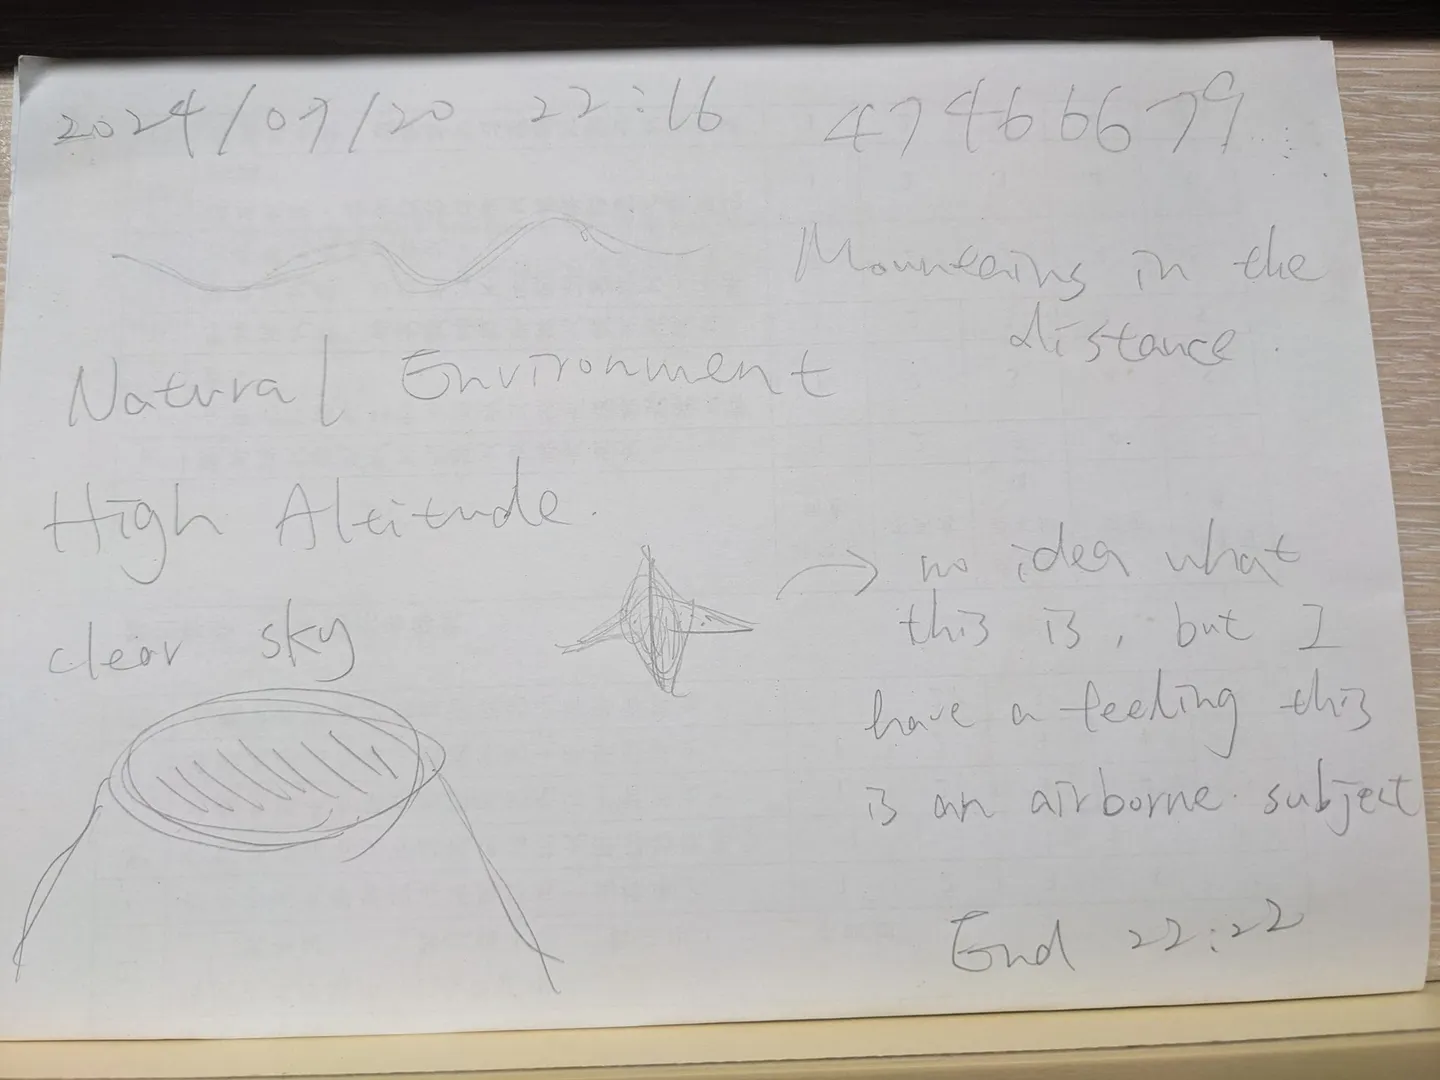 2024/07/20 22:16 47466679
Mountains in the
distance.
Natural Environment
High Altitude.
clear sky
no idea what
this is, but I
have a feeling this
is an airborne subject
End 22:22